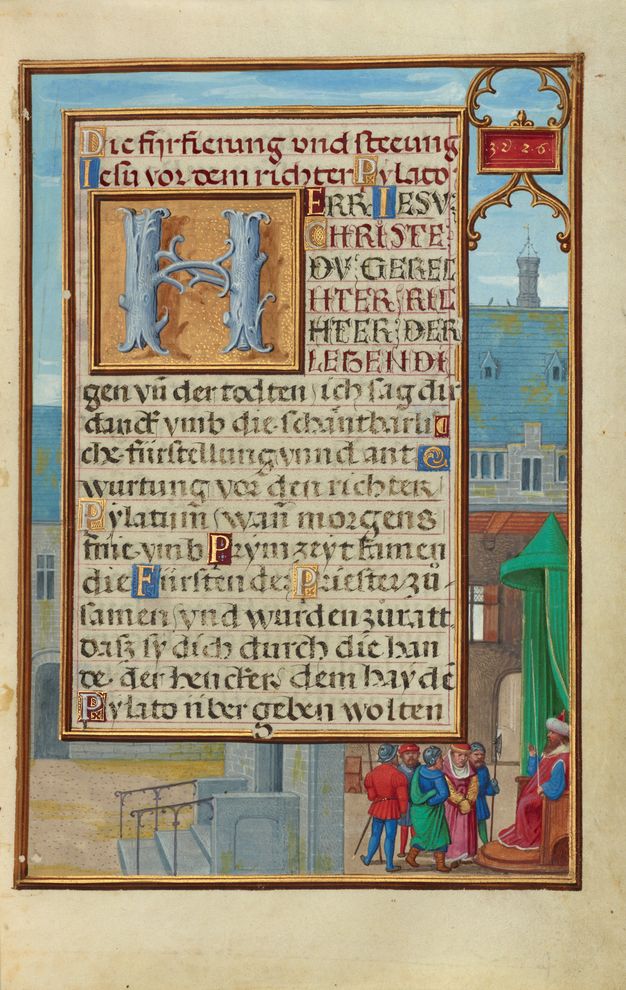 Die fürfierung vnd steeung
Iesu vor dem richter Pylato
HERR: IESV:
CHRISTE
DV: GEREC
HTER: RIC
HTER: DER
LEBENDI
gen vn̄ der todten, ich sag dir
danck vmb die schantbarli
che fürstellung vnnd ant
wurtung vor den richter
Pylatum, wan̄ morgens
frue vmb Prymzeyt kamen
die Fürsten der Priester zů
samen, vnd wurden zuratt
dasz sy dich durch die han
de der hencker dem hayde
Pylato uber geben wolten